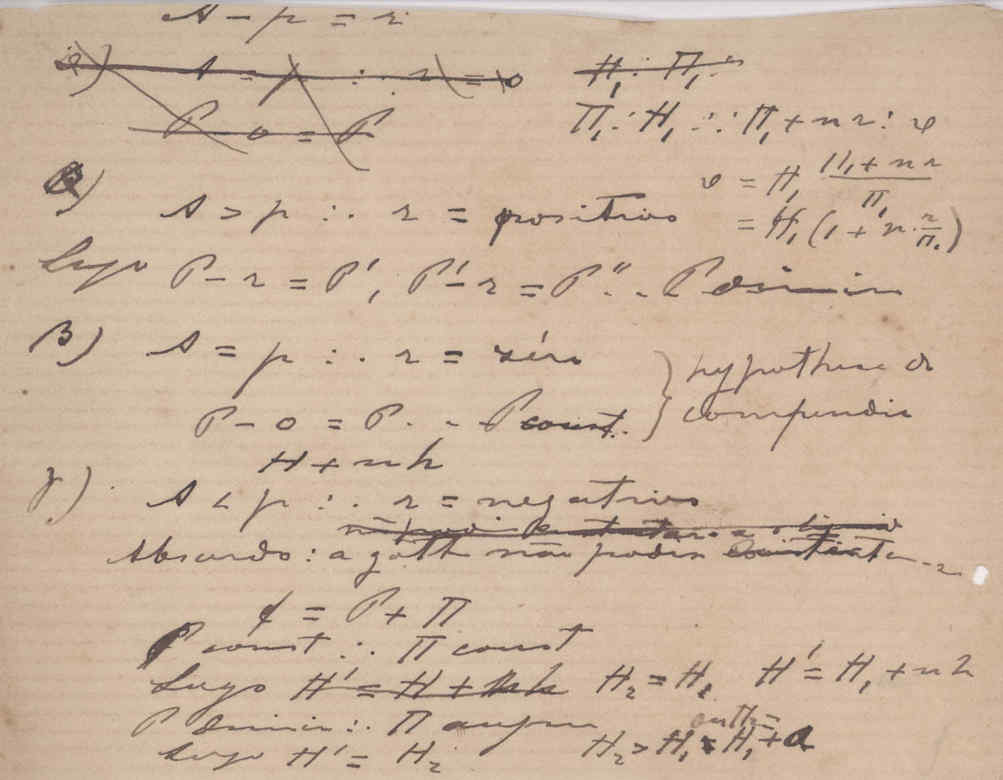 A − p = r
A = p ∴ r = 0
P − 0 = P
H₁ : Π₁ ::
Π₁ : H₁ :: Π₁ + n r : φ
φ = H₁ (Π₁ + n r)/Π₁
= H₁ (1 + n · r/Π₁)
A > p ∴ r = positivo
Logo P − r = P′, P′ − r = P″ .. P diminue
β) A = p ∴ r = zéro
P − 0 = P .. P const.
} hypothese do compendio
H + n h
γ) A < p ∴ r = negativo
Absurdo : a gotta não podia
¢ = P + Π
P const ∴ Π const
Logo H′ = H + h H₂ = H₁ H′ = H₁ + n h
P diminue ∴ Π augm
Logo H′ = H₂ H₂ > H₁ H₁ + a